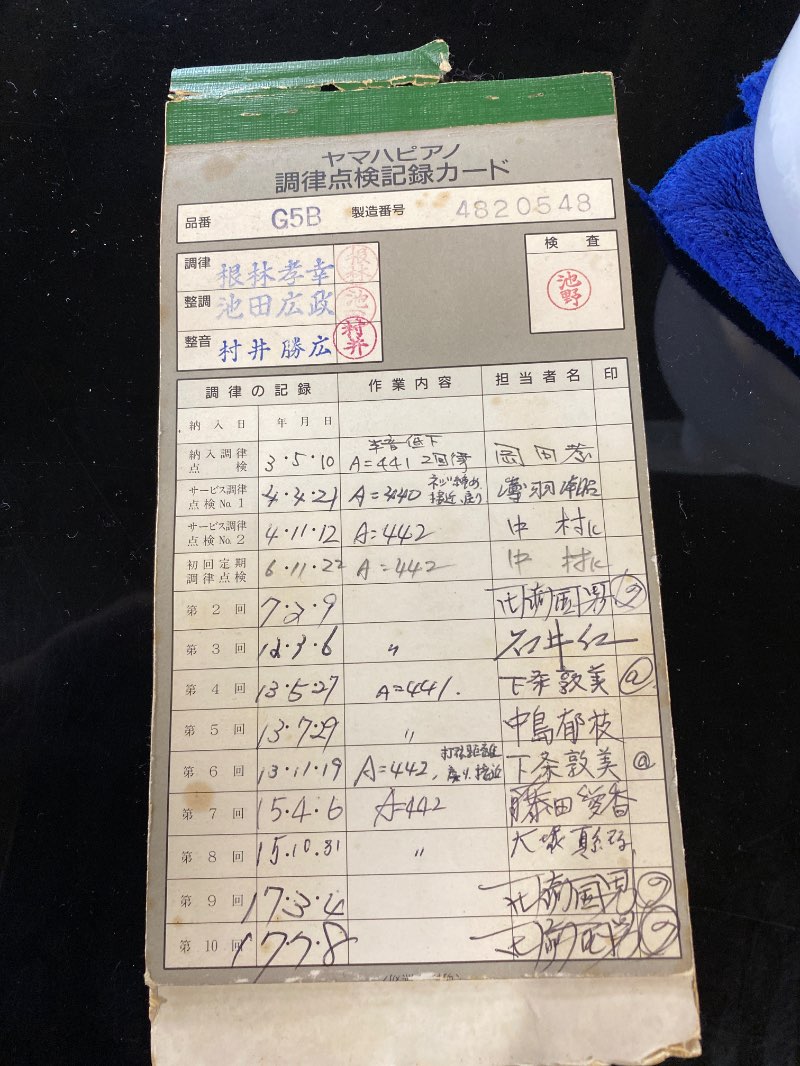 ヤマハピアノ
調律点検記録カード
品番 G5B 製造番号 4820548
調律 根林孝幸 根林
整調 池田広政 池
整音 村井勝広 村井
検査
池野
調律の記録 作業内容 担当者名 印
納入日 年月日
半音低下
納入調律点検 3・5・10 A=441 2回
サービス調律点検No.1 4・4・21 接近、戻り
サービス調律点検No.2 4・11・12 A=442 中村
初回定期調律点検 6・11・22 A=442 中村
第2回 7・2・9
第3回 12・3・6 〃 石井
第4回 13・5・27 A=441. 下条敦美
第5回 13・7・29 〃 中島郁枝
第6回 13・11・19 A=442, 打弦距離 戻り、接近 下条敦美
第7回 15・4・6 A=442 藤田愛香
第8回 15.10.31 〃
第9回 17・3・4
第10回 17・7・8